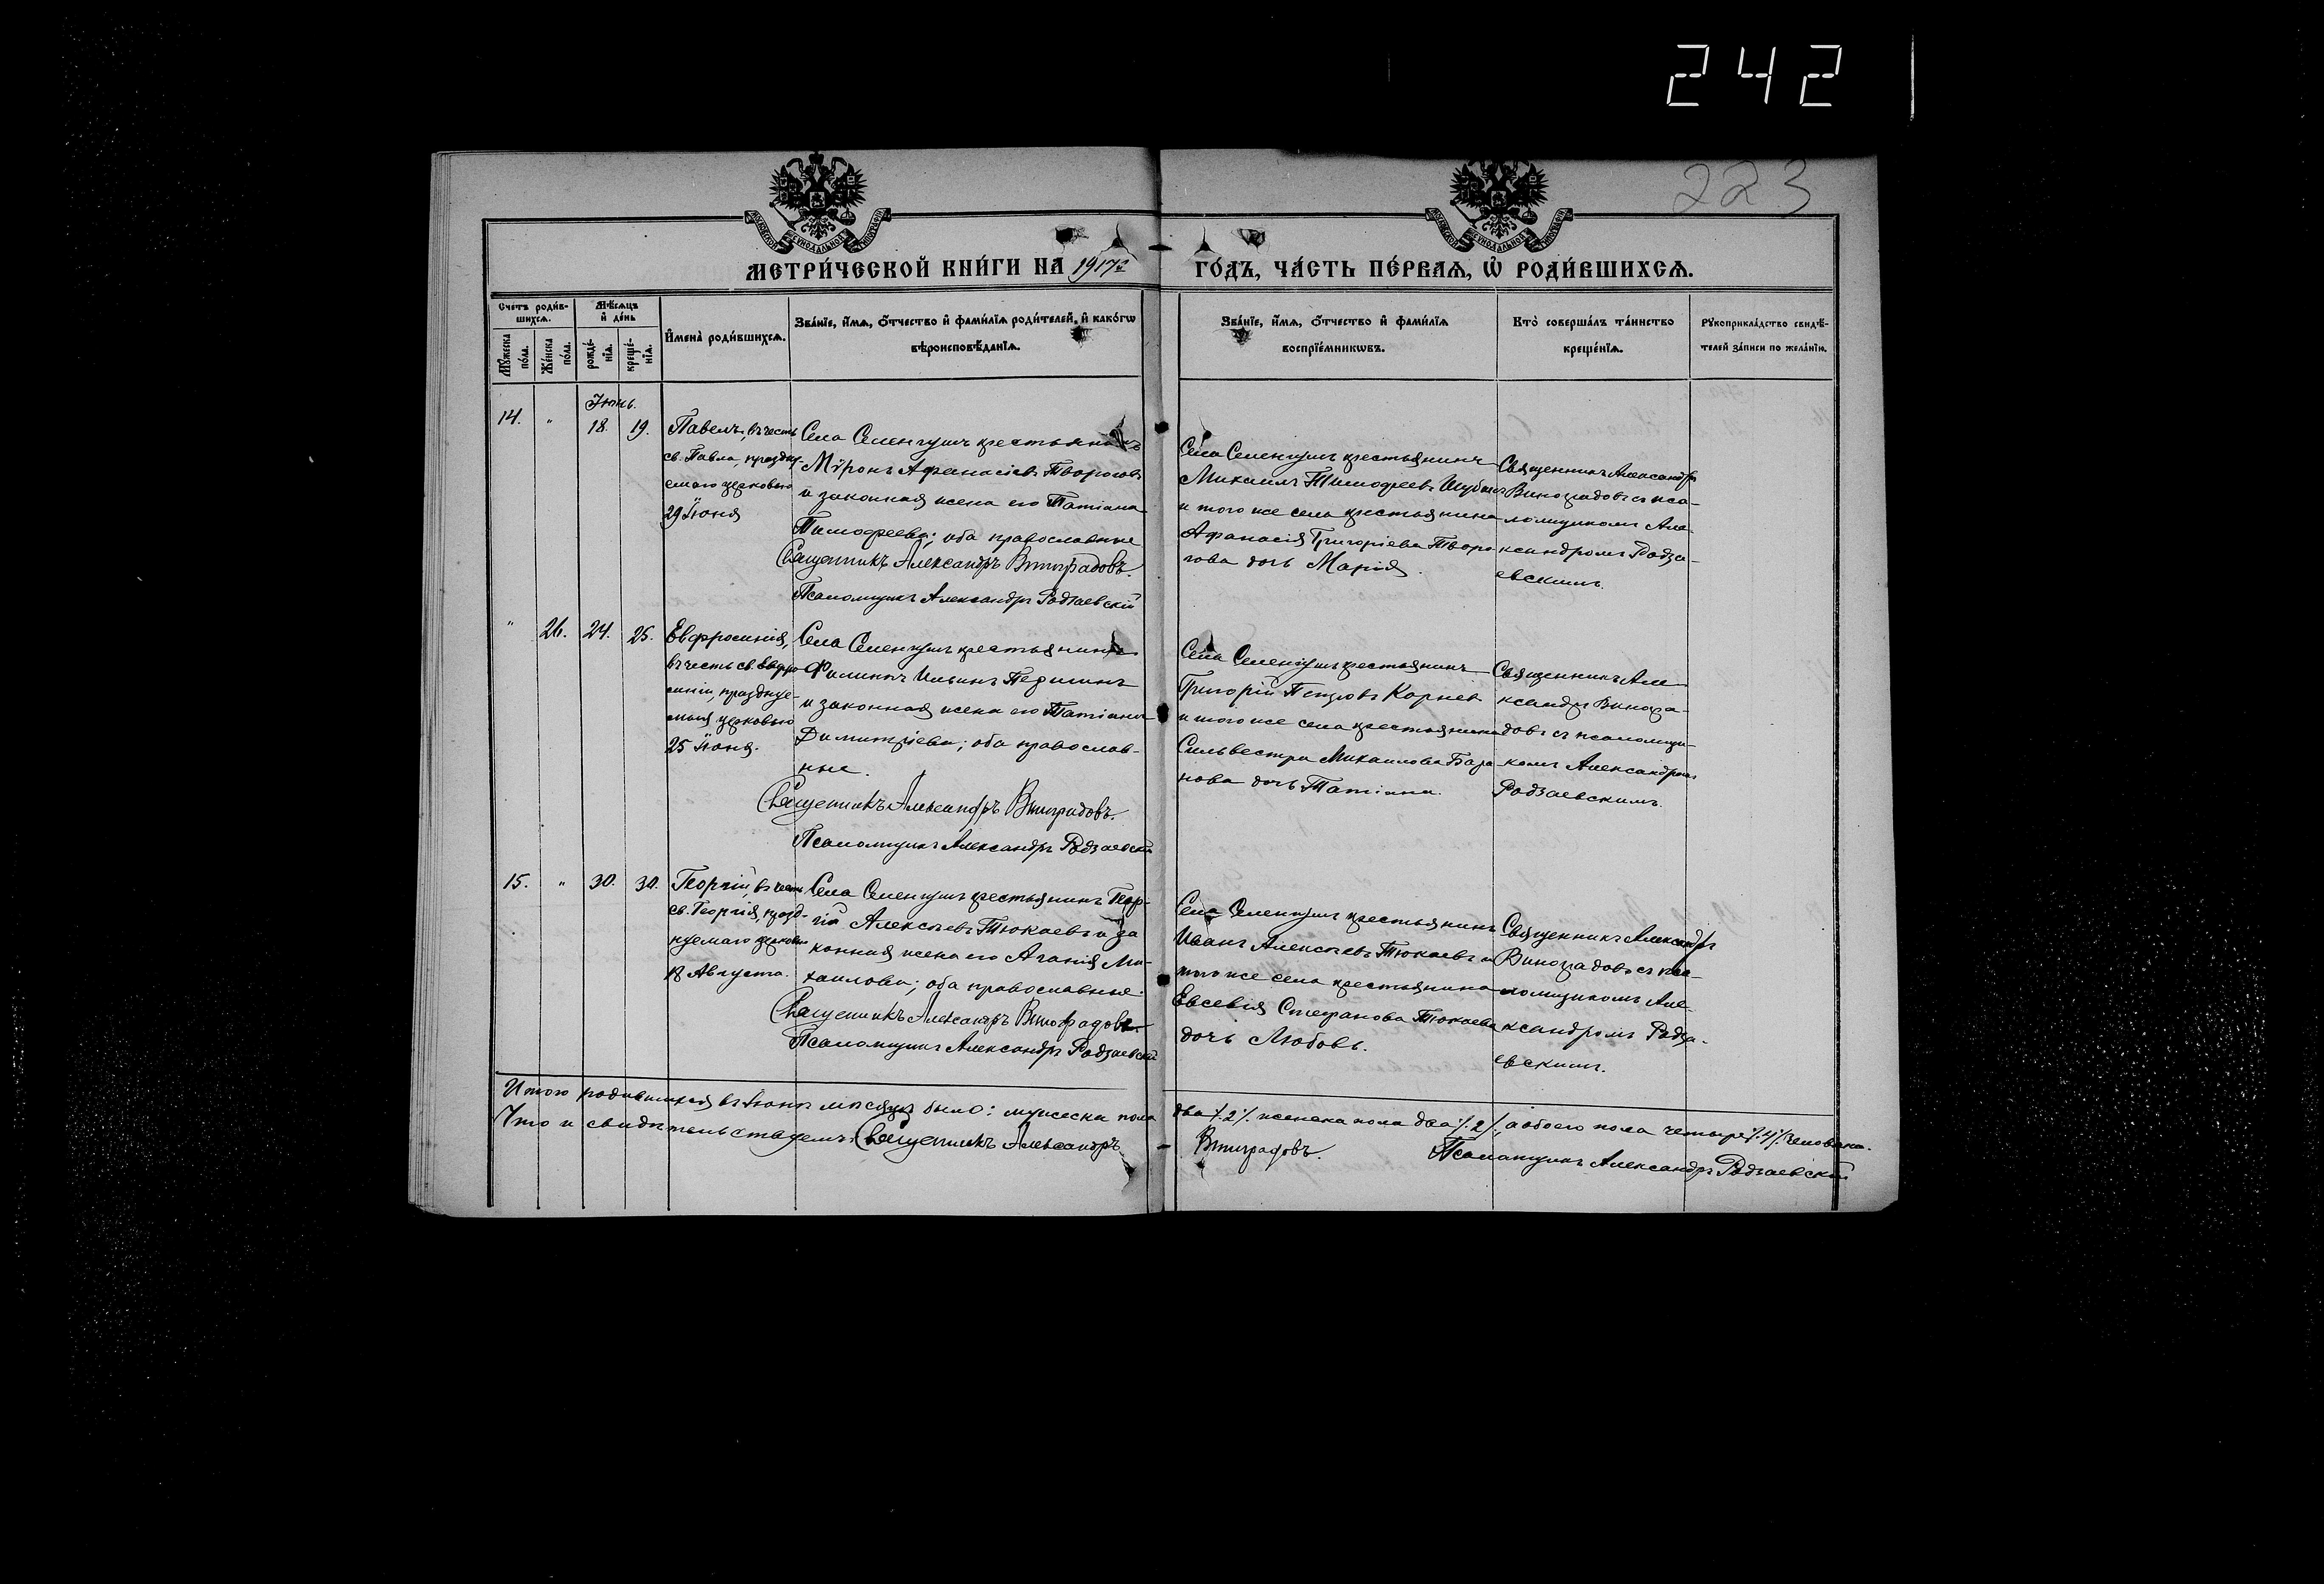 242
223
МЕТРИ́ЧЕСКОЙ КНИ́ГИ НА 1917 г.
ГО́ДЪ, ЧА́СТЬ ПЕ́РВАѦ, Ѽ РОДИ́ВШИХСѦ.
Счетъ роди́в-
шихсѧ.
Мꙋ́жеска
по́ла.
Же́нска
по́ла.
Мѣ́сѧцъ
и҆ де́нь
рожде́-
нїѧ.
креще́-
нїѧ.
И҆мена̀ роди́вшихсѧ.
Зва́нїе, и҆́мѧ, ѻ҆́тчество и҆ фами́лїѧ роди́телей, и҆ како́гѡ
вѣроисповѣ́данїѧ.
Зва́нїе, и҆́мѧ, ѻ҆́тчество и҆ фами́лїѧ
воспрїе́мникѡвъ.
Кто̀ соверша́лъ та́инство
креще́нїѧ.
Рꙋкоприкла́дство свидѣ́-
телей за́писи по жела́нїю.
Іюнь.
14.
"
18.
19.
Павелъ, въ честь
св. Павла, праздну-
емаго церковью
29 Іюня
Села Селенгушъ крестьянинъ
Мѵронъ Афанасіевъ Творогов
и законная жена его Татіана
Тимофеева; оба православные
Священникъ Александръ Виноградовъ.
Псаломщикъ Александръ Родзаевскій
Села Селенгушъ крестьянинъ
Михаилъ Тимофеевъ Шубин
и того же села крестьянина
Афанасія Григоріева Творо
гова дочь Марія.
Священникъ Александръ
Виноградовъ съ пса-
ломщикомъ Але-
ксандромъ Родза-
евскимъ.
"
26.
24.
25.
Евфросинія,
въ честь св. Евфро
синіи, празднуе-
мыя церковью
25 Іюня.
Села Селенгушъ крестьянинъ
Филиппъ Ильинъ Першинъ
и законная жена его Татіана
Димитріева; оба православ-
ные.
Священникъ Александръ Виноградовъ.
Псаломщикъ Александръ Родзаевскій
Села Селенгушъ крестьянинъ
Григорій Петровъ Корнев
и того же села крестьянина
Сильвестра Михаилова Бара
нова дочь Татіана.
Священникъ Але
ксандръ Виногра-
довъ съ псаломщи-
комъ Александромъ
Родзаевскимъ.
15.
"
30.
30.
Георгій, въ честь
св. Георгія, празд-
нуемаго церковью
18 Августа.
Села Селенгушъ крестьянинъ Геор-
гій Алексѣевъ Тюкаевъ и за
конная жена его Агапія Ми-
хаилова; оба православные.
Священникъ Александръ Виноградовъ
Псаломщикъ Александръ Родзаевскій
Села Селенгушъ крестьянинъ
Иванъ Алексѣевъ Тюкаевъ и
того же села крестьянина
Евсевія Стефанова Тюкаева
дочь Любовь.
Священникъ Александръ
Виноградовъ съ пса-
ломщикомъ Але-
ксандромъ Родза-
евскимъ.
Итого родившихся въ Іюнѣ мѣсяцѣ было: мужеска пола два /.2/. женска пола два /.2/., а обоего пола четыре /.4/. человѣка.
Что и свидѣтельствуемъ: Священникъ Александръ Виноградовъ. Псаломщикъ Александръ Родзаевскій